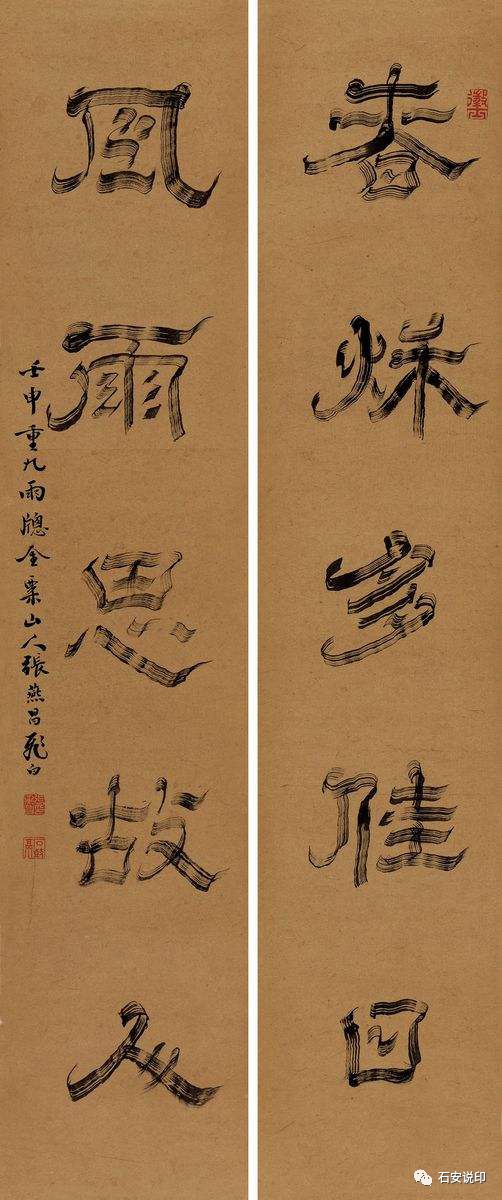 春秌多佳日
風雨思故人
壬申重九雨牕金粟山人張燕昌飛白
石安说印